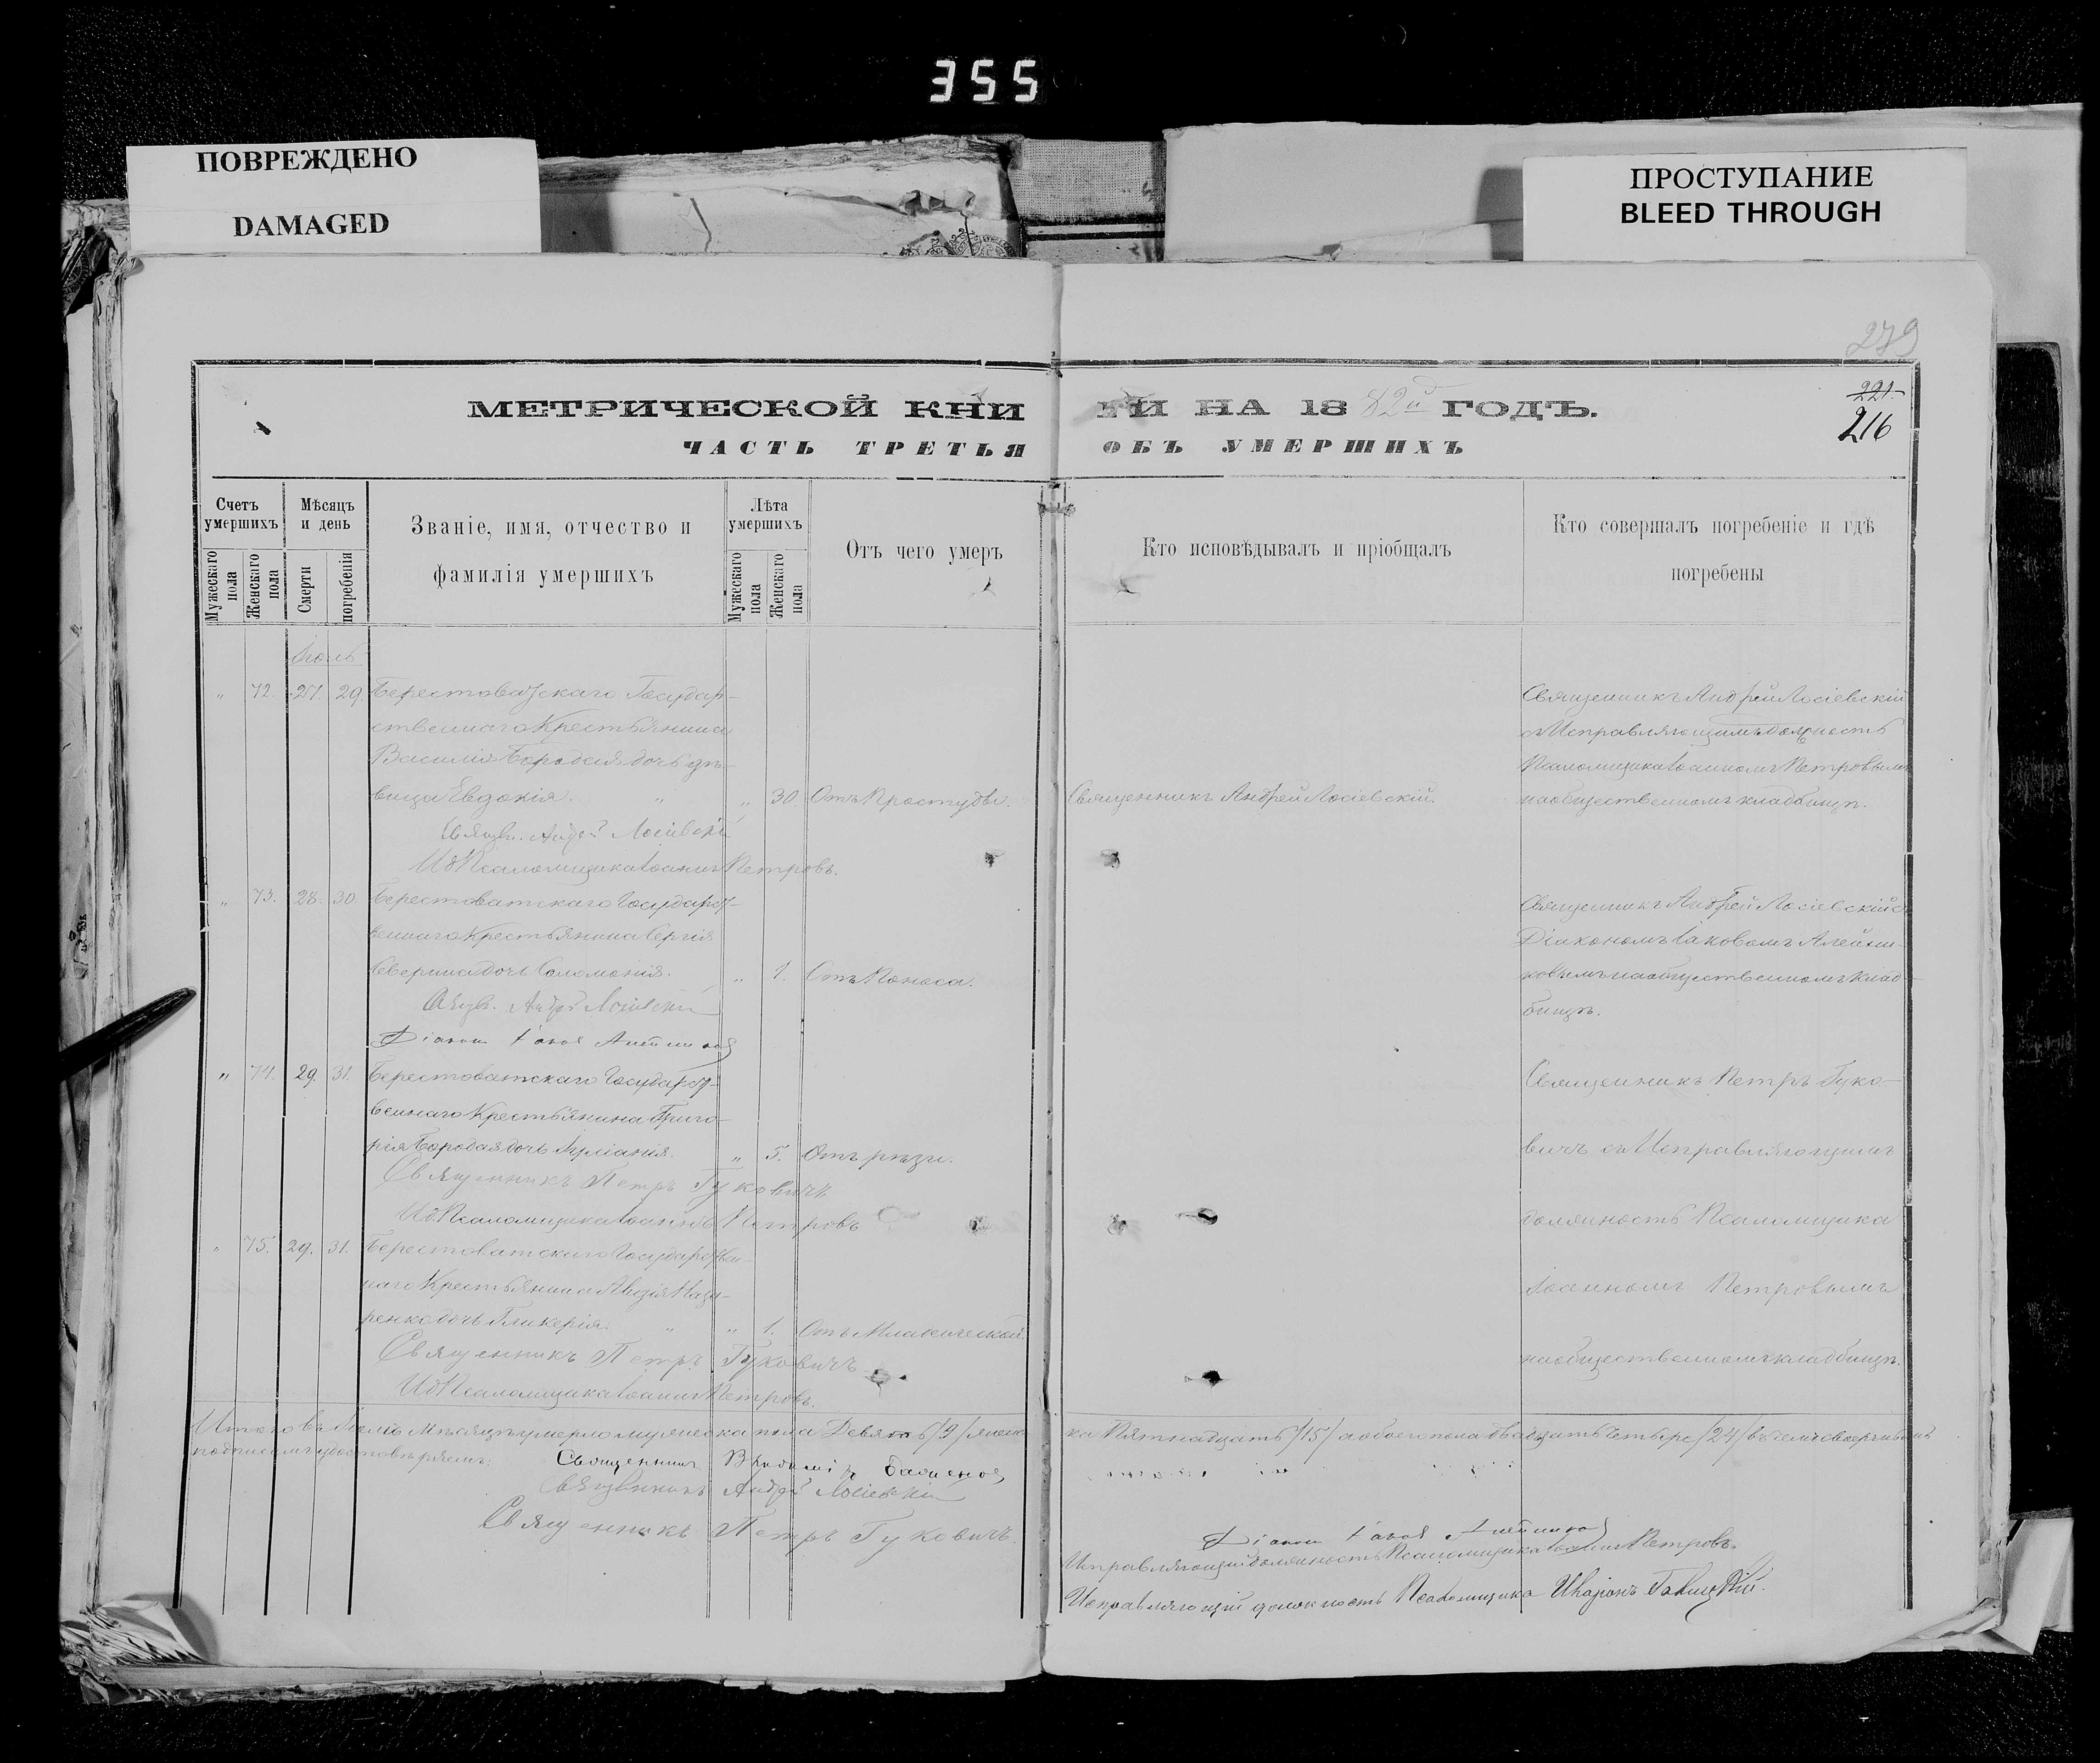 355
ПОВРЕЖДЕНО
DAMAGED
ПРОСТУПАНИЕ
BLEED THROUGH
279
221
216
МЕТРИЧЕСКОЙ КНИ
ГИ НА 1882й ГОДЪ.
ЧАСТЬ ТРЕТЬЯ
ОБЪ УМЕРШИХЪ
Счетъ умершихъ
Мужескаго пола
Женскаго пола
Мѣсяцъ и день
Смерти
погребенія
Званіе, имя, отчество и
фамилія умершихъ
Лѣта умершихъ
Мужескаго пола
Женскаго пола
Отъ чего умеръ
Кто исповѣдывалъ и пріобщалъ
Кто совершалъ погребеніе и гдѣ
погребены
Іюль
" 72. 27. 29. Берестоватскаго Государ-
ственнаго Крестьянина
Василія Бородая дочь дѣ-
вица Евдокія. " " 30 Отъ Простуды.
Священ. Андрей Лосіевскій
ИдПсаломщика Іоаннъ Петровъ.
Священникъ Андрей Лосіевскій.
Священникъ Андрей Лосіевскій
съ Исправляющимъ должность
Псаломщика Іоанномъ Петровымъ
на общественномъ кладбищѣ.
" 73. 28. 30 Берестоватскаго Государст-
веннаго Крестьянина Сергія
Северина дочь Соломонія. " 1. Отъ Поноса.
Священ. Андрей Лосіевскій
Діаконъ Іаковъ Алейниковъ
Священникъ Андрей Лосіевскій съ
Діакономъ Іаковомъ Алейни-
ковымъ на общественномъ клад-
бищѣ.
" 74. 29. 31. Берестоватскаго Государст-
веннаго Крестьянина Григо-
рія Бородая дочь Іуліанія. " 5. Отъ рѣзи.
Священникъ Петръ Гуковичъ
ИдПсаломщика Іоаннъ Петровъ
Священникъ Петръ Гуко-
вичъ съ Исправляющимъ
должность Псаломщика
Іоанномъ Петровымъ
на общественномъ кладбищѣ.
" 75. 29. 31. Берестоватскаго Государствен-
наго Крестьянина
ренка дочь Гликерія. " " 1. Отъ Младенческой.
Священникъ Петръ Гуковичъ
ИдПсаломщика Іоаннъ Петровъ.
Итого въ Іюлѣ Мѣсяцѣ умерло мужеска пола Девять /9/ женска Пятнадцать /15/ а обоего пола двадцать четыре /24/ въ чемъ
подписомъ удостовѣряемъ: Священникъ
Священникъ Андрей Лосіевскій
Священникъ Петръ Гуковичъ.
Діаконъ Іаковъ Алейниковъ
Исправляющій должность Псаломщика Іоаннъ Петровъ.
Исправляющій должность Псаломщика Иларіонъ